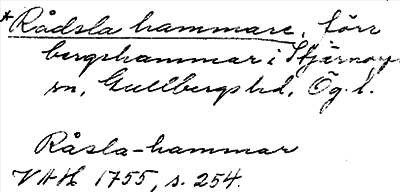 *Rådsla hammare, förr
bergshammar i Stjärnorps
sn, Gullbergs hd, Ög. l.
Råsla-hammar
VAH 1755, s. 254.